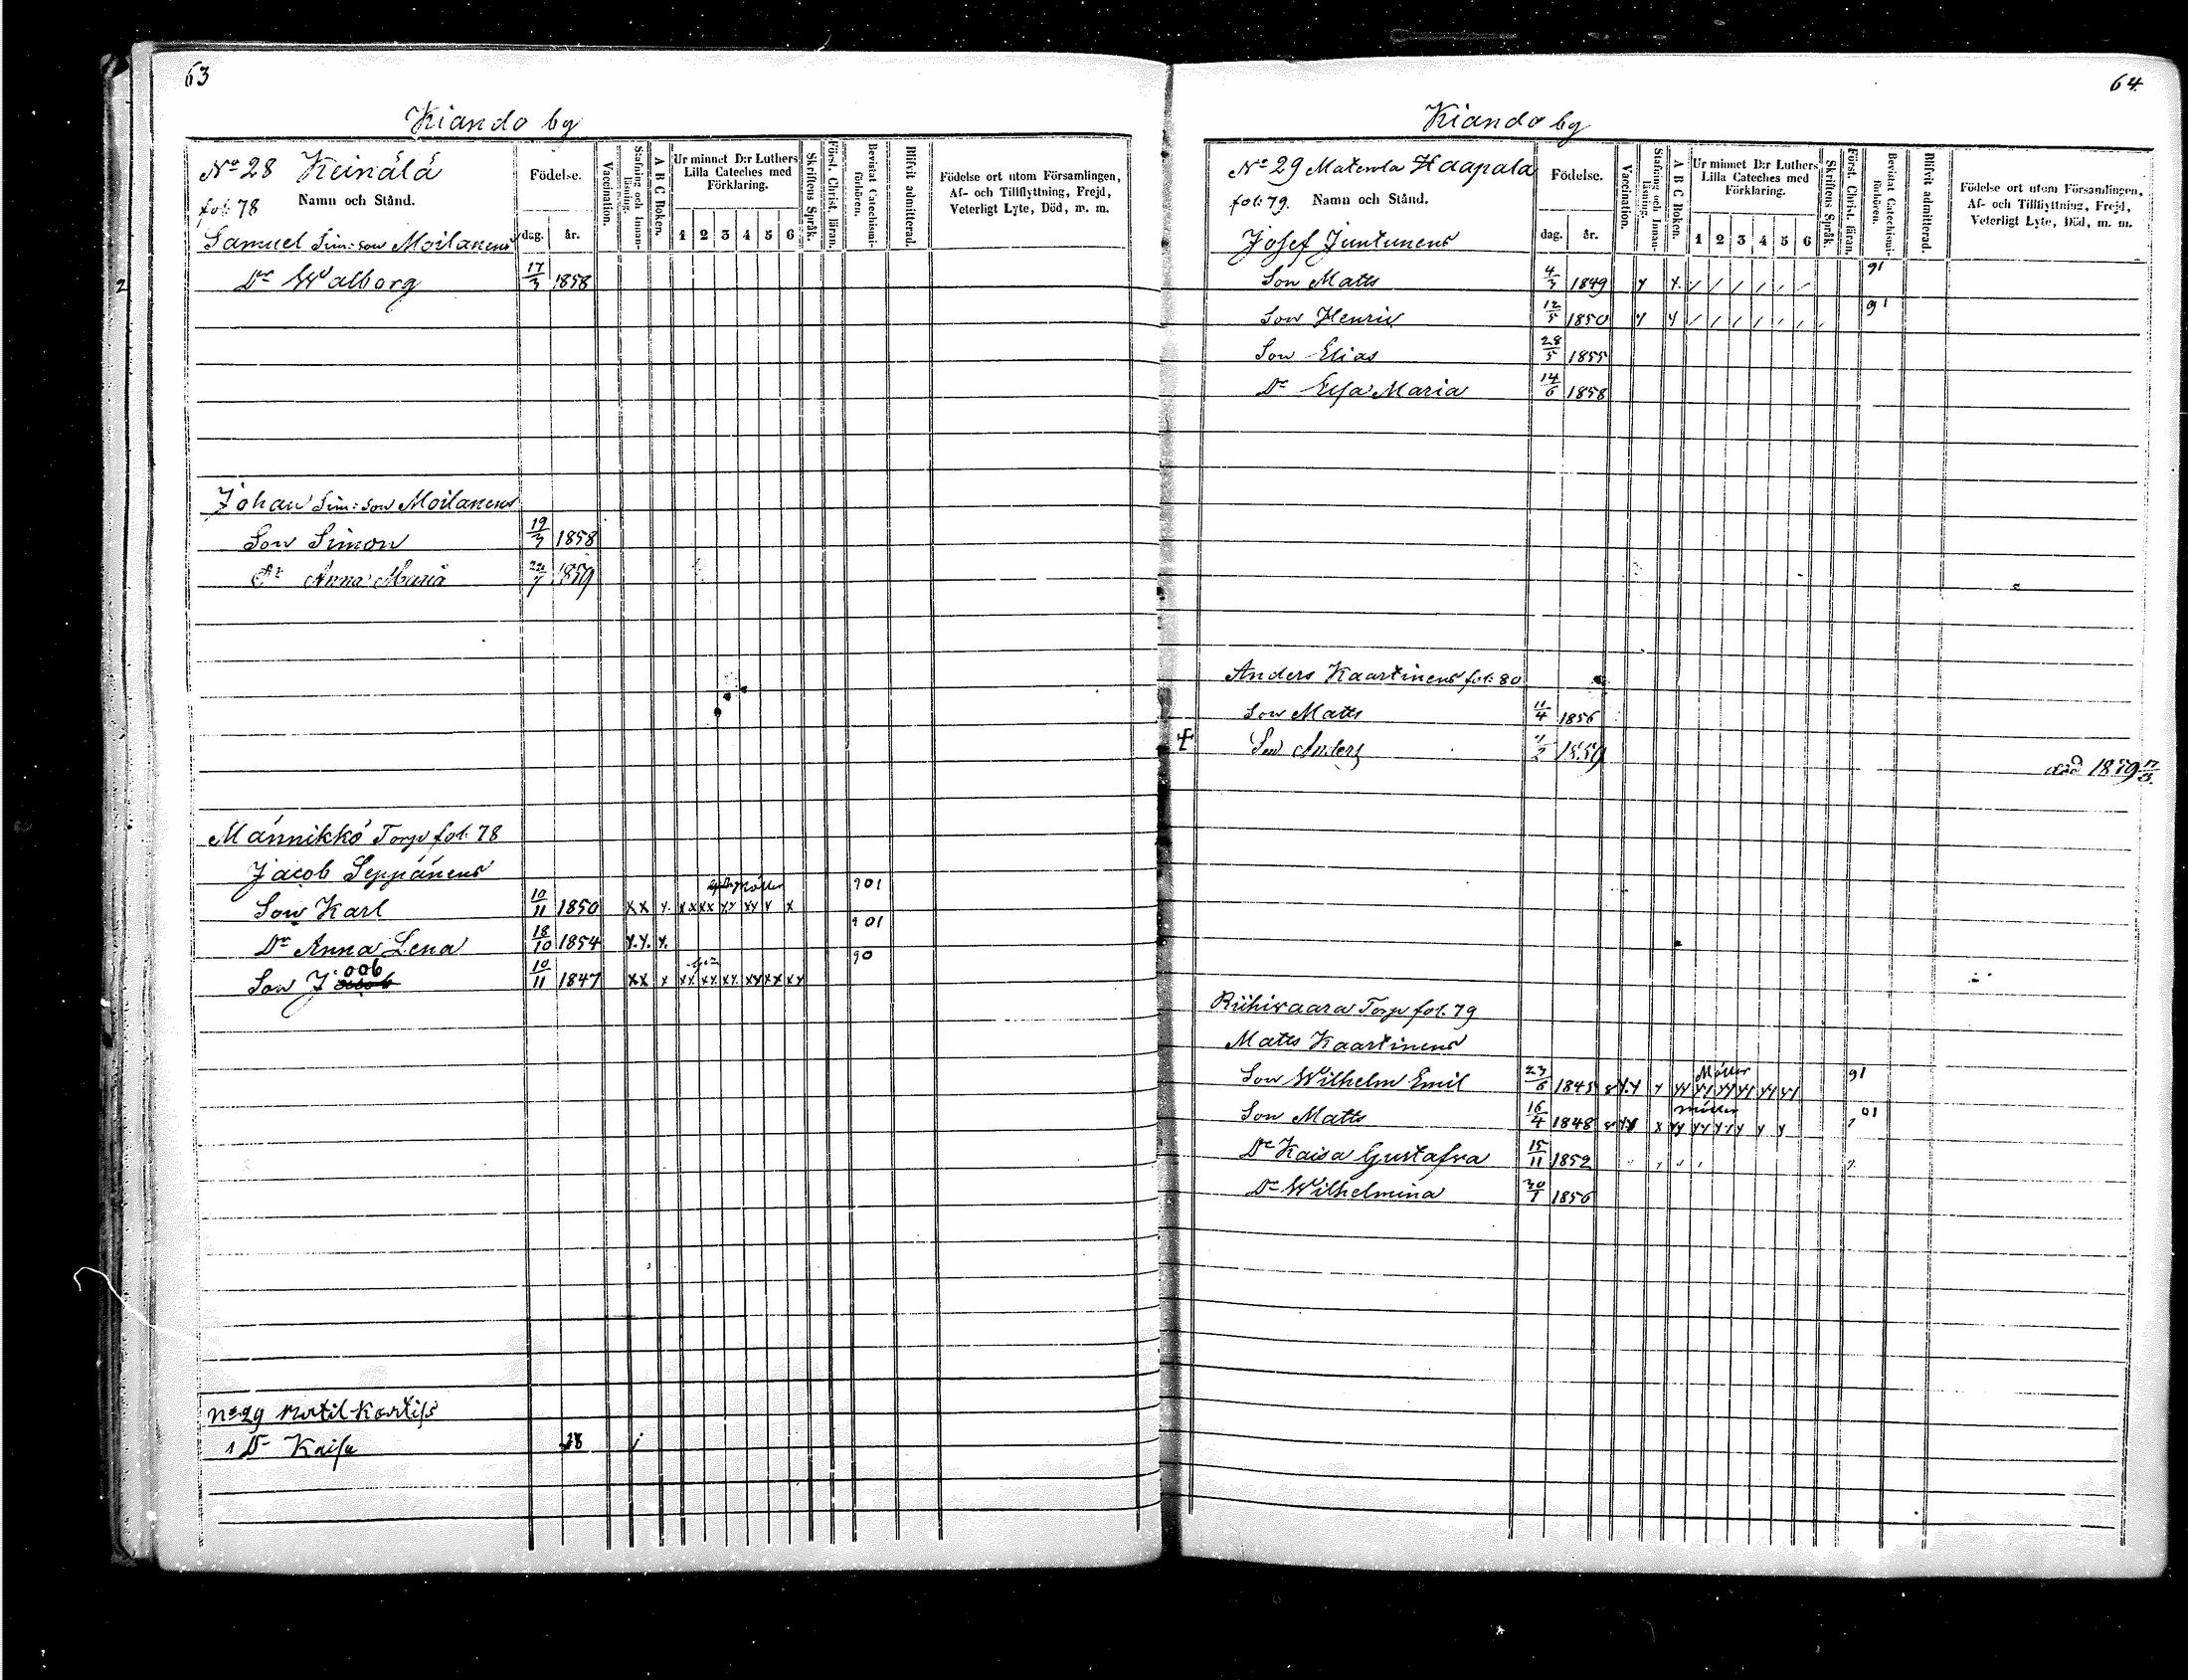 63
Kiando by
No 28 Keinälä
fol: 78
Namn och Stånd.
Födelse.
dag. år.
Vaccination.
Stafning och Innanläsning.
A B C Boken.
Ur minnet D:r Luthers Lilla Cateches med Förklaring.
1 2 3 4 5 6
Skriftens Språk.
Först. Christ. läran.
Bevistat Catechismiförhören.
Blifvit admitterad.
Födelse ort utom Församlingen, Af- och Tillflyttning, Frejd, Veterligt Lyte, Död, m. m.
Samuel Sim: son Moilanens
Dr Walborg 17/3 1858
Johan Sim: son Moilanens
Son Simon 19/3 1858
Dr Anna Maria 1859
Männikkö Torp fol. 78
Jacob Seppänens
Son Karl 10/11 1850 x x y. x x x x y y x y y x 901
Dr Anna Lena 18/10 1854 y. y. y. 901
Son J 10/11 1847 x x x x x x x x x x y x x x y 90
No 29
1 Dr Kaisa 18
64
Kiando by
No 29 Materola Haapala
fol: 79.
Namn och Stånd.
Födelse.
dag. år.
Vaccination.
Stafning och Innanläsning.
A B C Boken.
Ur minnet D:r Luthers Lilla Cateches med Förklaring.
1 2 3 4 5 6
Skriftens Språk.
Först. Christ. läran.
Bevistat Catechismiförhören.
Blifvit admitterad.
Födelse ort utom Församlingen, Af- och Tillflyttning, Frejd, Veterligt Lyte, Död, m. m.
Josef Juntunens
Son Matts 4/3 1849 y y. / / / / / / 91
Son Henric 12/5 1850 y y / / / / / / / 91
Son Elias 28/5 1855
Dr Eva Maria 14/6 1858
Anders Kaartinens fol: 80
Son Matts 11/4 1856
Son Anders 1859
död 1859 17/3.
Riihivaara Torp fol. 79
Matts Kaartinens
Möller
Son Wilhelm Emil 23/6 1845 y. y y yy yy yy yy yy yy 91
möller
Son Matts 16/4 1848 y y x yy yy yy y y y 01
Dr Kaisa Gustafva 15/11 1852
Dr Wilhelmina 30/1 1856